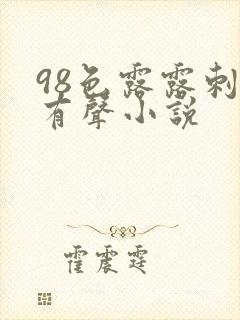 98色露露刺
有聲小說
霍震霆